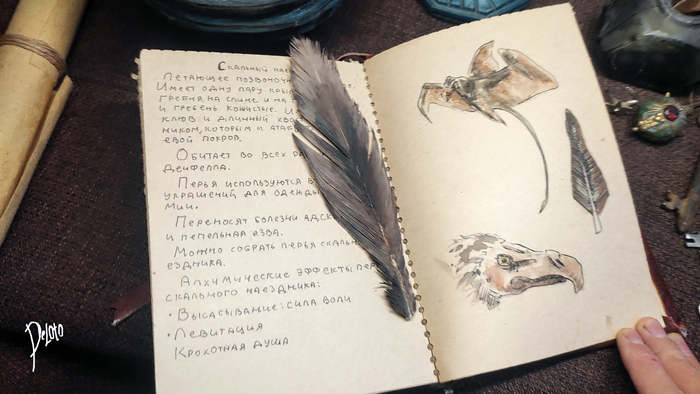 Скальный
Летающее позвоночн
Имеет одну пару крыл
гребня, на спине и на
и гребень кожистые.
клюв и длинный хвос
ником, которым и атак
евой покров.
Обитает во всех ра
Дейфелла.
Перья используются в
украшений для одежды
мии.
Переносят болезни адск
и пепельная язва.
Можно собрать перья скальн
ездника.
Алхимические эффекты пер
скального наездника:
· Высасывание: сила воли
· Левитация
Крохотная душа
DeLoro